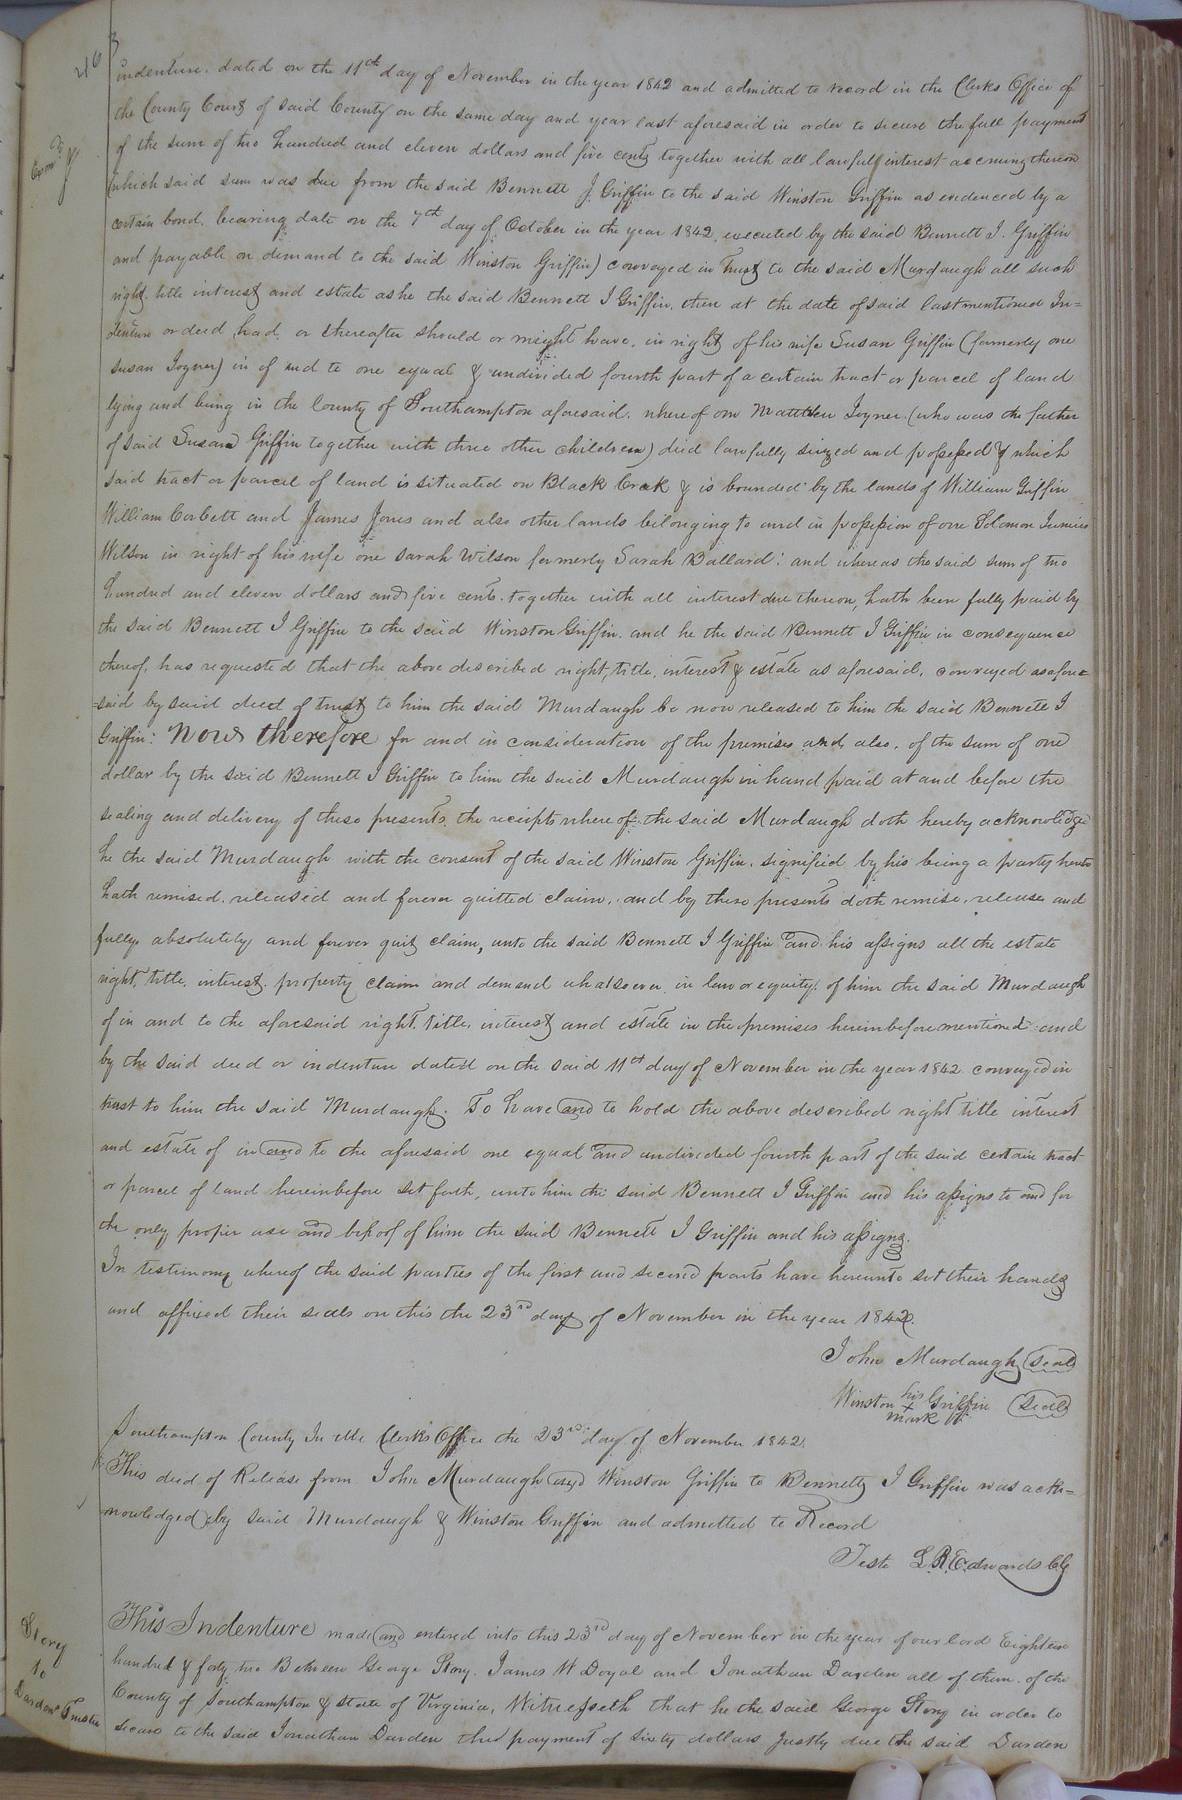 indenture. dated on the 11th day of November in the year 1842 and admitted to record in the Clerks Office of
the County Court of said County on the same day and year last aforesaid in order to secure the full payment
of the sum of two hundred and eleven dollars and five cents together with all lawfull interest accruing thereon
(which said sum was due from the said Bennett J. Griffin to the said Winston Griffin as evidenced by a
certain bond. bearing date on the 7th day of October in the year 1842. executed by the said Bennett J. Griffin
and payable on demand to the said Winston Griffin) conveyed in Trust to the said Murdaugh all such
right. title interest and estate as he the said Bennett J Griffin. then at the date of said last mentioned In=
denture or deed had. or thereafter should or might have. in right of his wife Susan Griffin (formerly one
Susan Joyner) in of and to one equal & undivided fourth part of a certain tract or parcel of land
lying and being in the County of Southampton aforesaid. whereof one Matthew Joyner. (who was the father
of said Susan Griffin together with three other children) died lawfully seized and possessed & which
said tract or parcel of land is situated on Black Creek & is bounded by the lands of William Griffin
William Corbett and James Jones and also other lands belonging to and in possession of one Solomon
Wilson in right of his wife one Sarah Wilson formerly Sarah Ballard: and whereas the said sum of two
hundred and eleven dollars and five cents. together with all interest due thereon, hath been fully paid by
the said Bennett J Griffin to the said Winston Griffin. and he the said Bennett J Griffin in consequence
thereof. has requested that the above described right, title, interest & estate as aforesaid. conveyed as afore=
=said by said deed of trust to him the said Murdaugh be now released to him the said Bennett J
Griffin: Now therefore for and in consideration of the premises and also. of the sum of one
dollar by the said Bennett J Griffin to him the said Murdaugh in hand paid at and before the
sealing and delivery of these presents. the receipts whereof the said Murdaugh doth hereby acknowledge
he the said Murdaugh with the consent of the said Winston Griffin. signified by his being a party hereto
hath remised. released and forever quitted claim. and by these presents doth remise. release and
fully absolutely and forever quit claim, unto the said Bennett J Griffin and his assigns all the estate
right. title. interest. property claim and demand whatsoever in law or equity. of him the said Murdaugh
of in and to the aforesaid right, title, interest and estate in the premises hereinbefore mentioned and
by the said deed or indenture dated on the said 11th day of November in the year 1842 conveyed in
trust to him the said Murdaugh. To have and to hold the above described right title interest
and estate of in and to the aforesaid one equal and undivided fourth part of the said certain tract
or parcel of land hereinbefore set forth, unto him the said Bennett J Griffin and his assigns to and for
the only proper use and behoof of him the said Bennett J Griffin and his assigns.
In testimony whereof the said parties of the first and second parts have hereunto set their hands
and affixed their seals on this the 23rd day of November in the year 1842.
John Murdaugh (seal)
Winston his + mark Griffin (seal)
Southampton County In the Clerks Office the 23rd day of November 1842.
This deed of Release from John Murdaugh and Winston Griffin to Bennett J Griffin was ack=
nowledged by said Murdaugh & Winston Griffin and admitted to Record
Teste L. R. Edwards Clk
Story
to
Dardens Trustee
This Indenture made and entered into this 23rd day of November in the year of our lord Eighteen
hundred & forty two Between George Story. James W Doyal and Jonathan Darden all of them. of the
County of Southampton & State of Virginia, Witnesseth that he the said George Story in order to
secure to the said Jonathan Darden the payment of Sixty dollars Justly due the said Darden